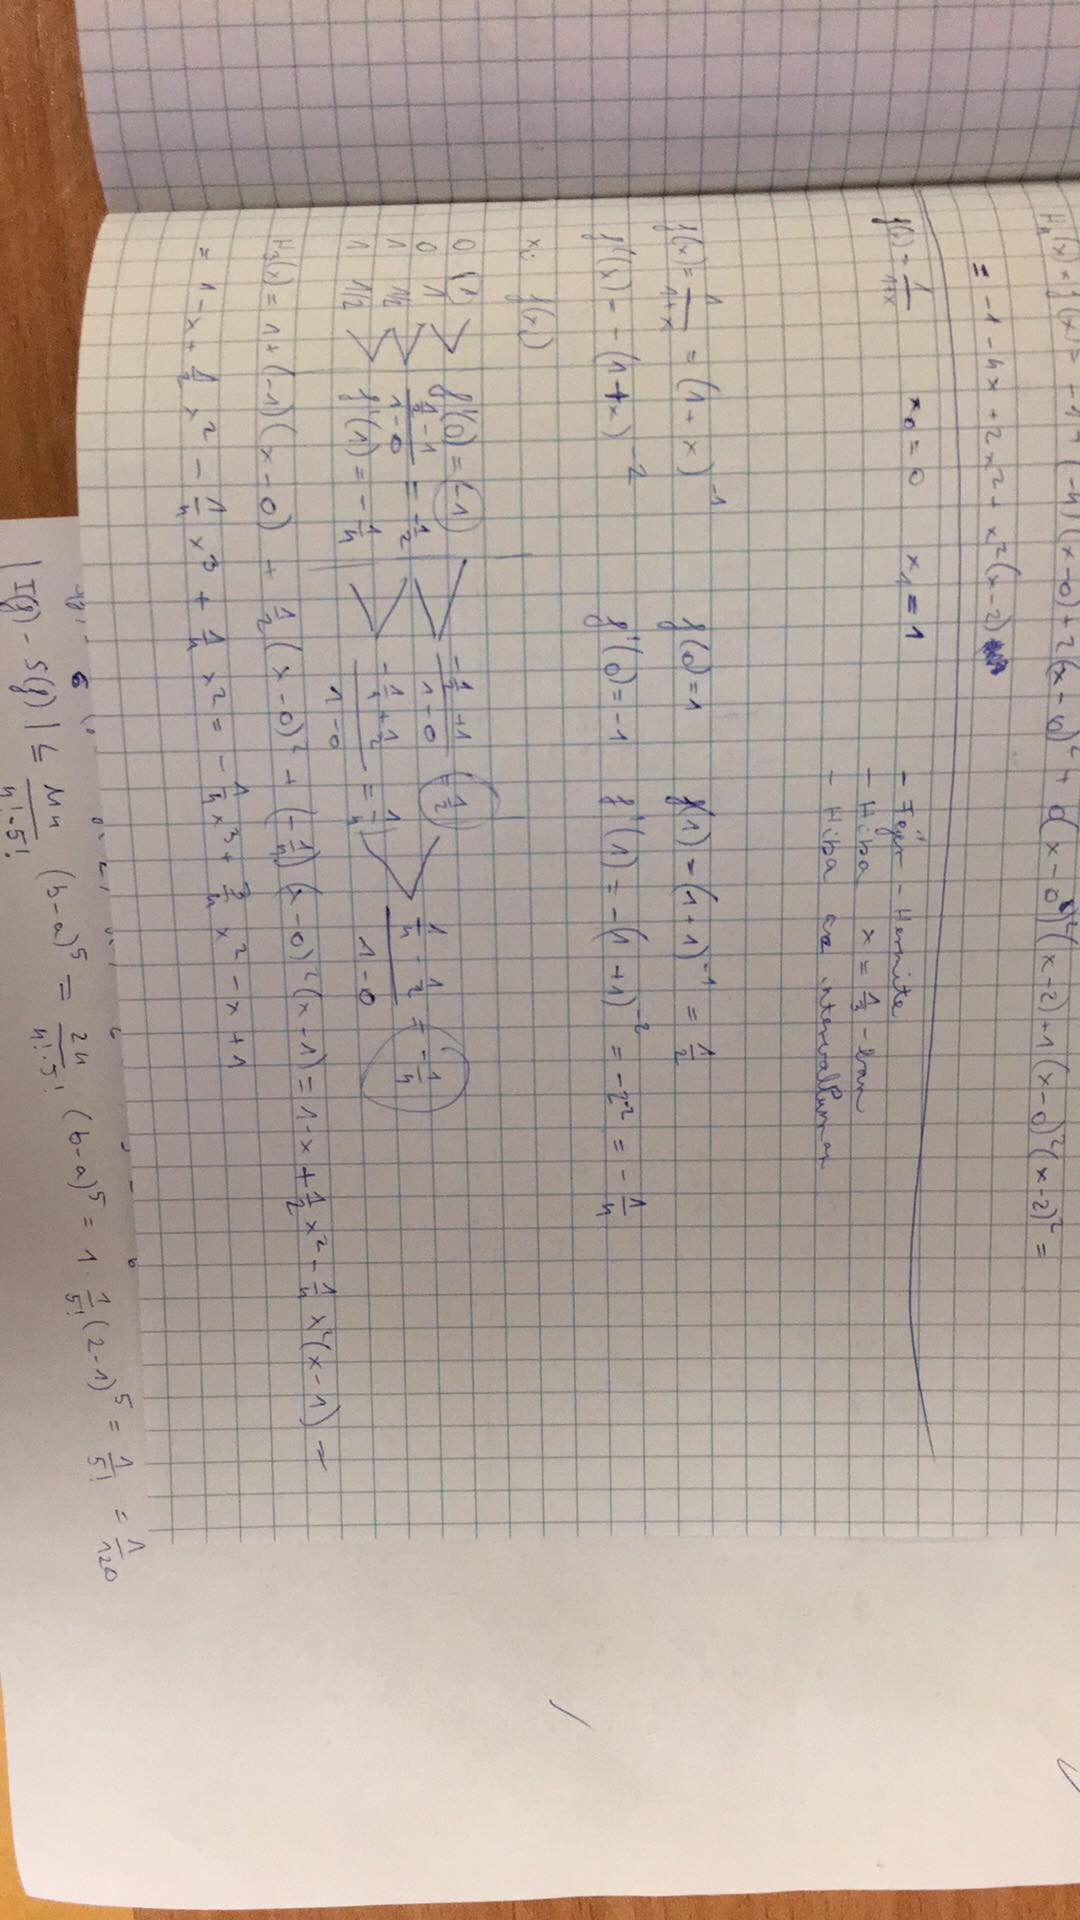 H₄(x) = f(x) = -1 + (-4)(x-0) + 2(x-0)² + 0(x-0)²(x-2) + 1(x-0)²(x-2)² =
= -1 - 4x + 2x² + x²(x-2)
f(x) = 1/(1+x) x₀ = 0 x₁ = 1
- Fejér - Hermite
- Hiba x = 1/3 - ban
- Hiba az intervallumon
f(x) = 1/(1+x) = (1+x)⁻¹ f(0) = 1 f(1) = (1+1)⁻¹ = 1/2
f'(x) = -(1+x)⁻² f'(0) = -1 f'(1) = -(1+1)⁻² = -2⁻² = -1/4
xᵢ f(xᵢ)
0 1 f'(0) = -1 (-1/2 + 1)/(1-0) = 1/2
0 1 (1/2 - 1)/(1-0) = -1/2 (1/4 - 1/2)/(1-0) = -1/4
1 1/2 (-1/4 + 1/2)/(1-0) = 1/4
1 1/2 f'(1) = -1/4
H₃(x) = 1 + (-1)(x-0) + 1/2(x-0)² + (-1/4)(x-0)²(x-1) = 1 - x + 1/2 x² - 1/4 x²(x-1) =
= 1 - x + 1/2 x² - 1/4 x³ + 1/4 x² = -1/4 x³ + 3/4 x² - x + 1
|I(f) - S(f)| ≤ M4/(4!·5!) (b-a)⁵ = 24/(4!·5!) (b-a)⁵ = 1 · 1/5! (2-1)⁵ = 1/5! = 1/120